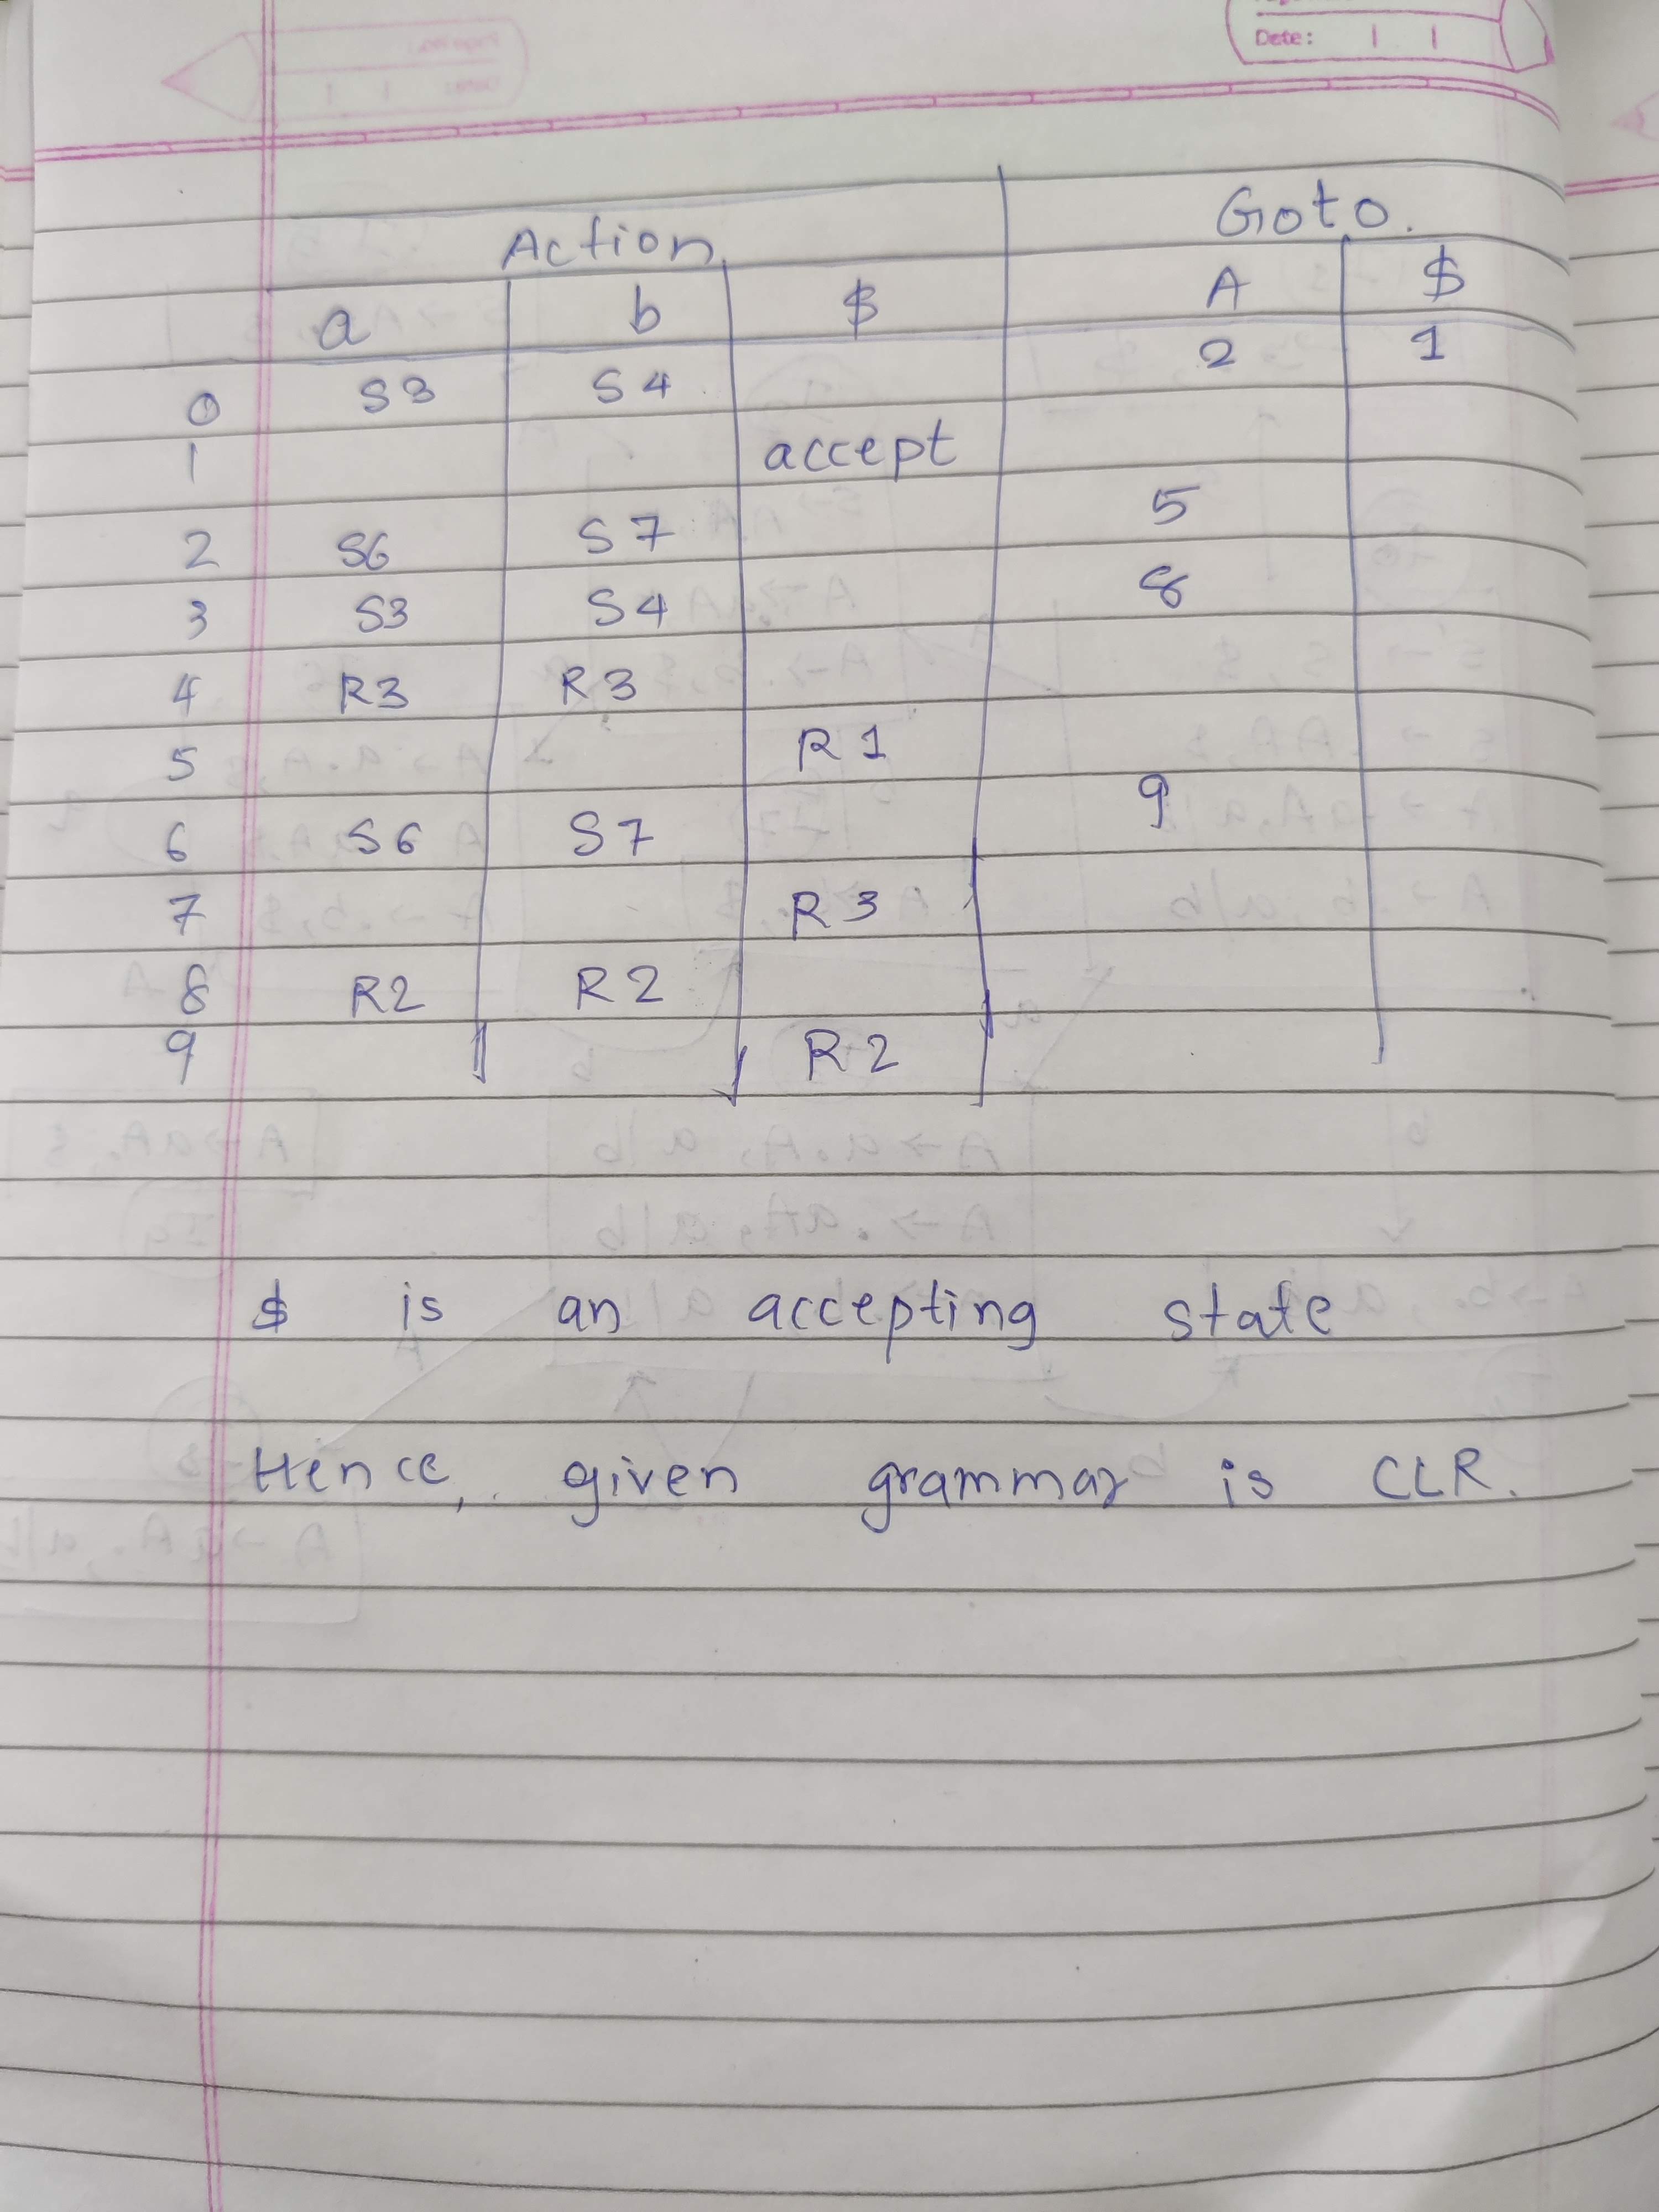 Date:
Action Goto.
a b $ A $
0 S3 S4 2 1
1 accept
2 S6 S7 5
3 S3 S4 8
4 R3 R3
5 R1
6 S6 S7 9
7 R3
8 R2 R2
9 R2
$ is an accepting state
Hence, given grammar is CLR.